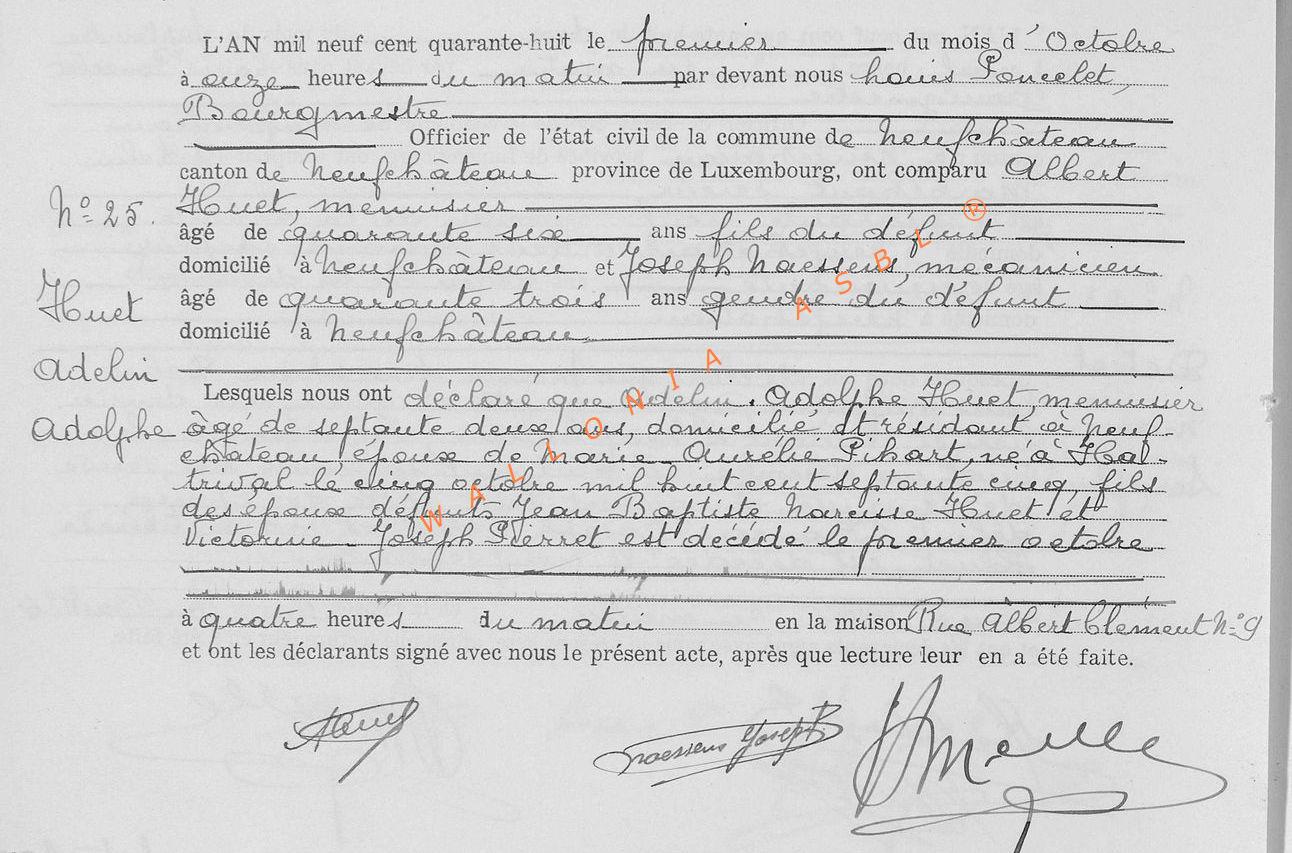 L'AN mil neuf cent quarante-huit le premier du mois d'Octobre
à onze heures du matin par devant nous Louis Poncelet,
Bourgmestre
Officier de l'état civil de la commune de Neufchâteau
canton de Neufchâteau province de Luxembourg, ont comparu Albert
N° 25. Huet, menuisier
âgé de quarante six ans fils du défunt
domicilié à Neufchâteau et Joseph Naessens, mécanicien
Huet âgé de quarante trois ans gendre du défunt
domicilié à Neufchâteau
Adelin
Lesquels nous ont déclaré que Adelin. Adolphe Huet, menuisier
Adolphe âgé de septante deux ans, domicilié et résidant à Neuf-
château époux de Marie-Aurélie Pihart, né à Hal-
trival le cinq octobre mil huit cent septante cinq, fils
des époux défunts Jean Baptiste Narcisse Huet et
Victorine-Joseph Pierret est décédé le premier octobre
à quatre heures du matin en la maison Rue Albert Clément N° 9
et ont les déclarants signé avec nous le présent acte, après que lecture leur en a été faite.
AHuet Naessens Joseph
WALLONIA ASBL ®